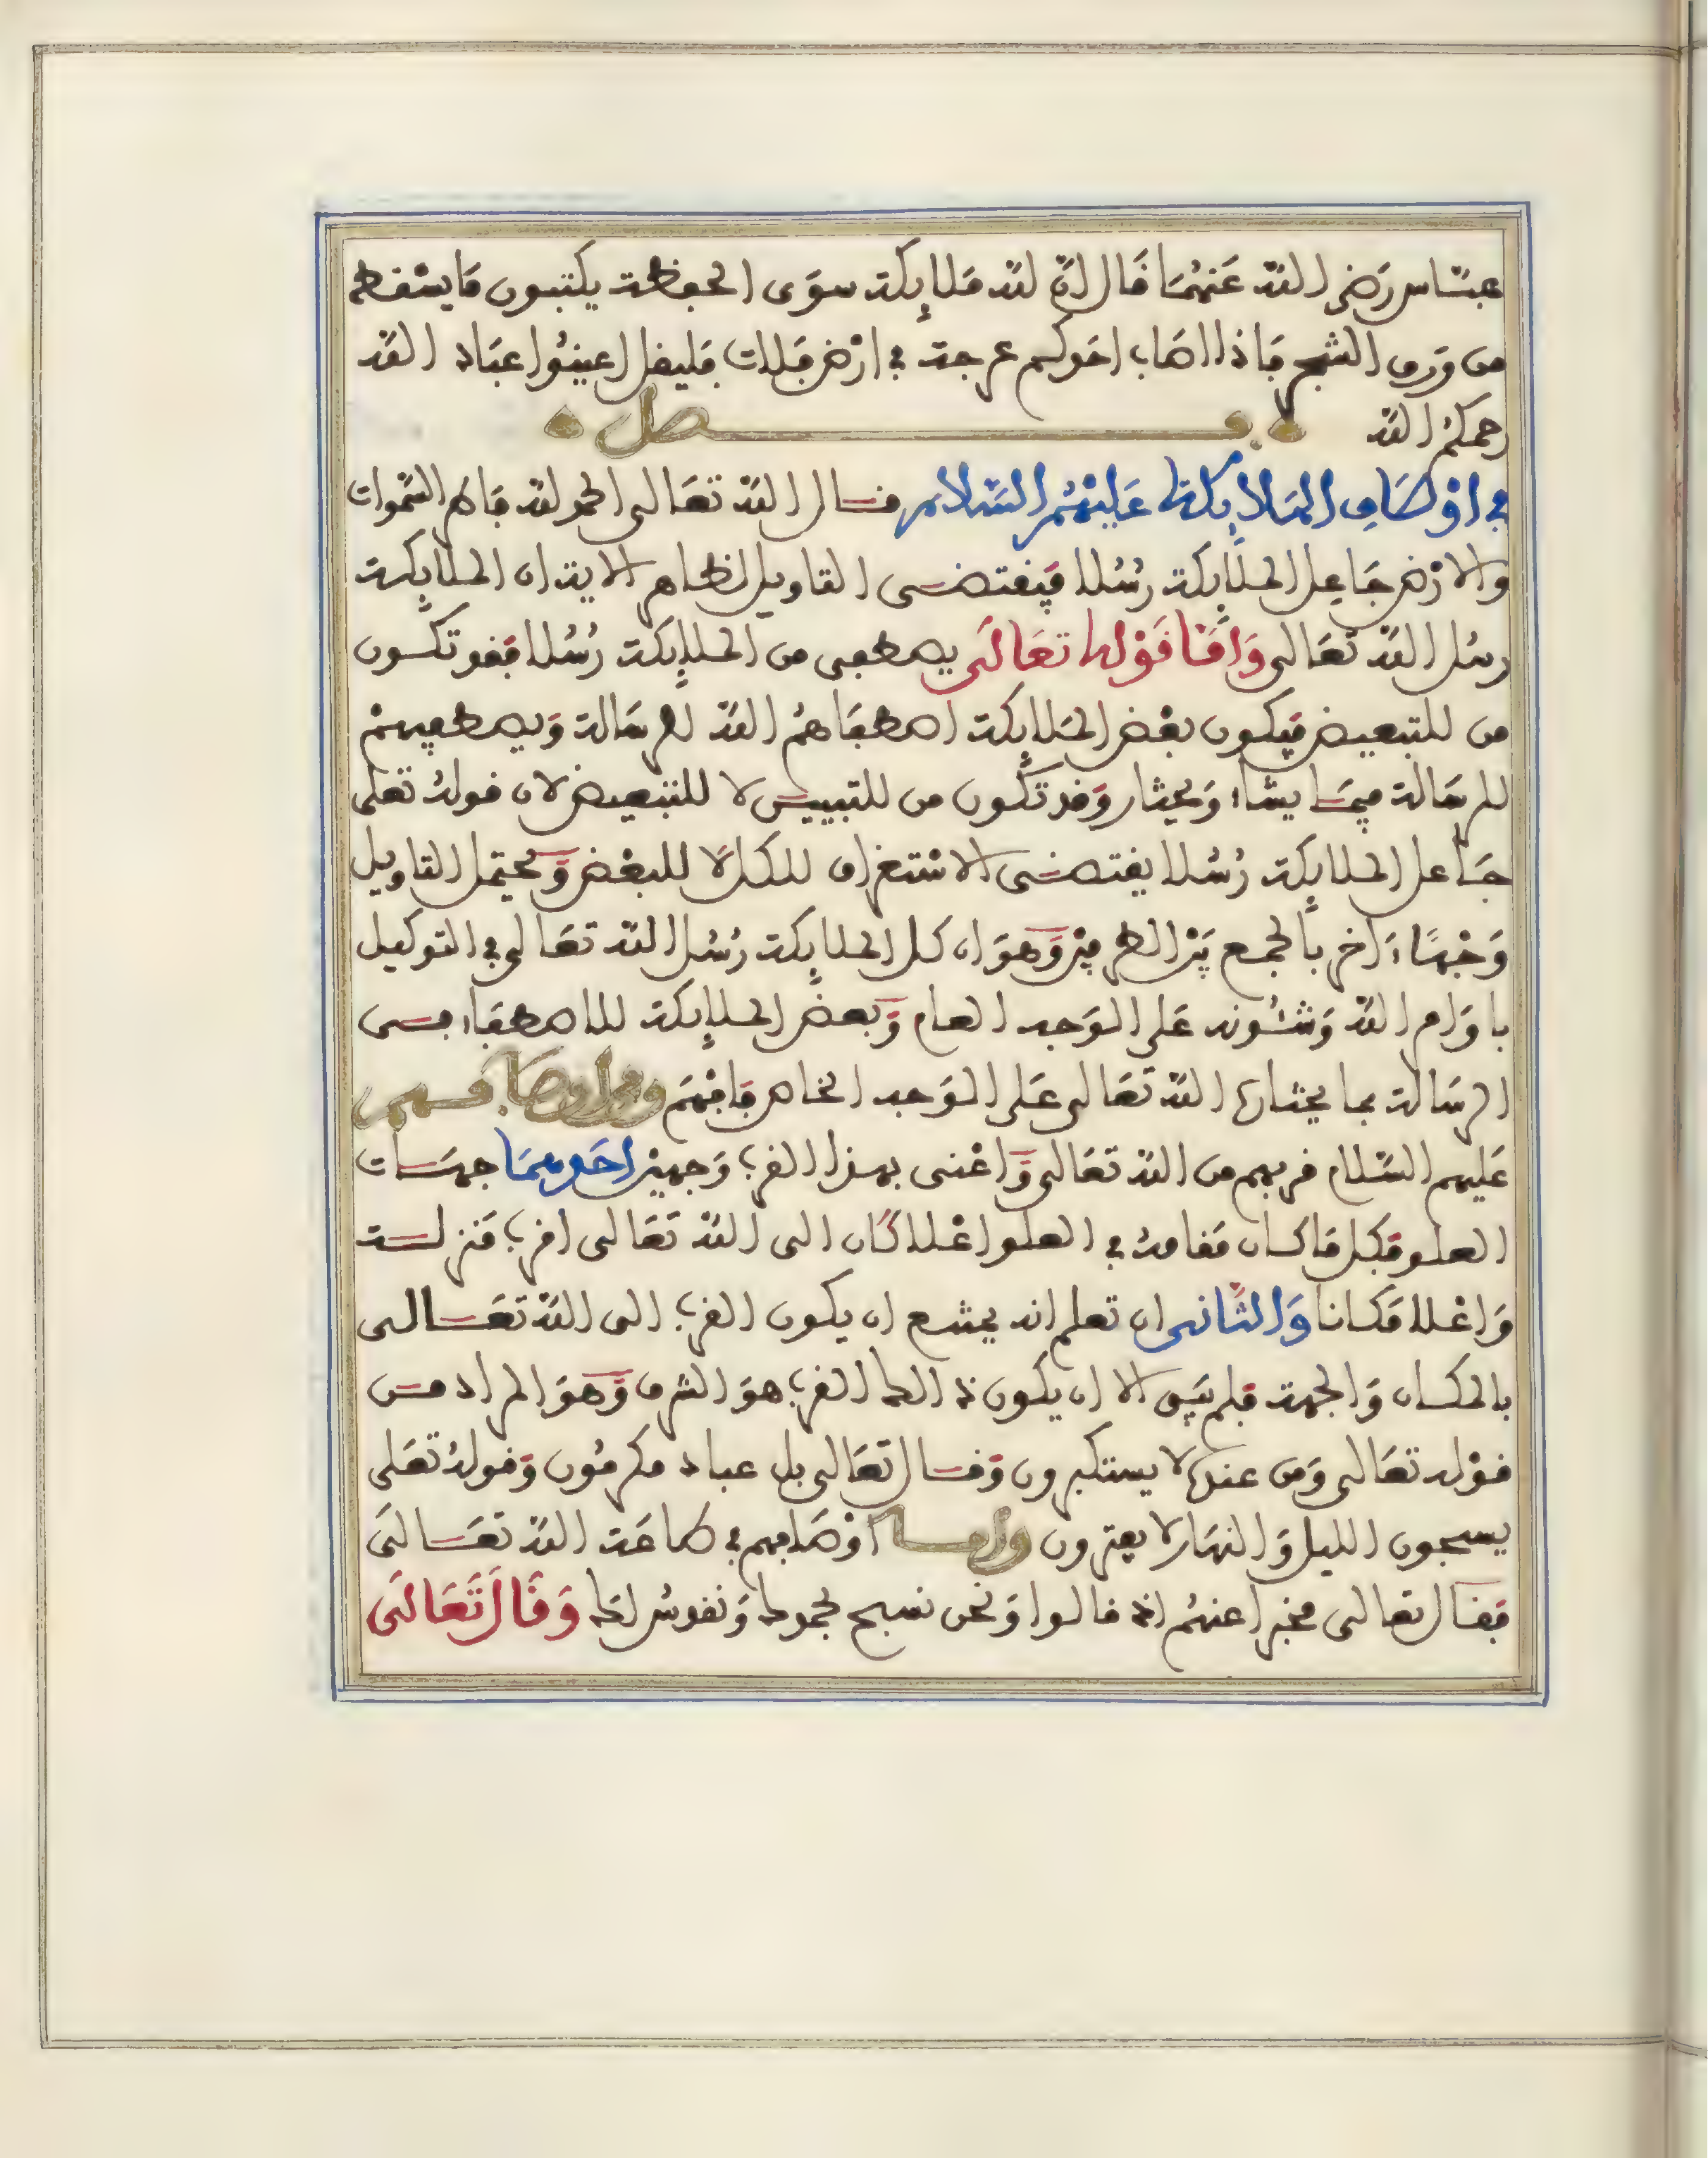 عباس رضي الله عنهما قال ان لله ملايكة سوى الحفظة يكتبون ما يسقط
من ورق الشجر فاذا اصاب احدكم عرجة في ارض فلات فليقل اعينوا عباد الله
رحمكم الله فصل
في اوصاف الملايكة عليهم السلام قال الله تعالى الحمد لله فاطر السموات
والارض جاعل الملايكة رسلا فيقتضى التاويل لظاهر الاية ان الملايكة
رسل الله تعالى واما قوله تعالى يصطفى من الملايكة رسلا فقد تكون
من للتبعيض فيكون بعض الملايكة اصطفاهم الله للرسالة ويصطفيهم
للرسالة فيما يشاء ويختار وقد تكون من للتبيين لا للتبعيض لان قوله تعلى
جاعل الملايكة رسلا يقتضى الاستغراق للكل لا للبعض ويحتمل التاويل
وجها ءاخر بالجمع بين الطرفين وهو ان كل الملايكة رسل الله تعالى في التوكيل
باوامر الله وشئونه على الوجه العام وبعض الملايكة للاصطفاء فى
الرسالة بما يختاره الله تعالى على الوجه الخاص فافهم ومن اوصافهم
عليهم السلام قربهم من الله تعالى واعنى بهذا القرب وجهين احدهما جهات
العلو فكل ما كان مقامه في العلو اعلا كان الى الله تعالى اقرب منزلة
واعلا مكانا والثانى ان تعلم انه يمتنع ان يكون القرب الى الله تعالى
بالمكان والجهة فلم يبق الا ان يكون ذالك القرب هو الشرف وهو المراد من
قوله تعالى ومن عنده لا يستكبرون وقال تعالى بل عباد مكرمون وقوله تعلى
يسبحون الليل والنهار لا يفترون واما اوصافهم في طاعة الله تعالى
فقال تعالى مخبرا عنهم اذ قالوا ونحن نسبح بحمدك ونقدس لك وقال تعالى